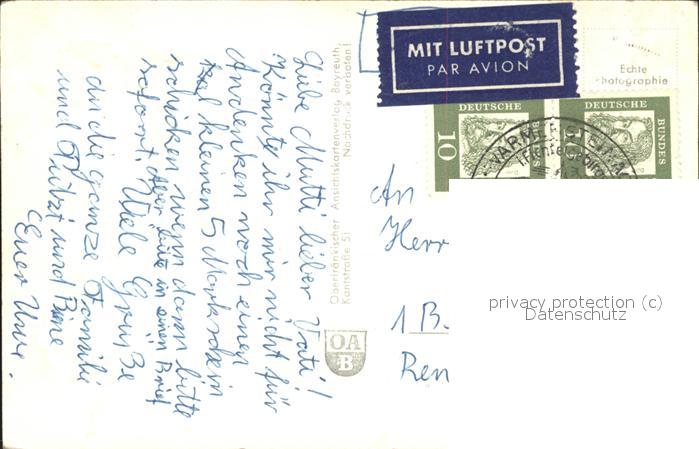 Liebe Mutti lieber Vati!
Könntet ihr mir nicht für
Andenken noch einen
kleinen 5 Markschein
schicken wenn dann bitte
sofort. Aber bitte in einen Brief
Viele Grüße
an die ganze Familie
und Putzi und Biene
Euer Uwe.
Oberfränkischer Ansichtskartenverlag Bayreuth,
Kantstraße 51 Nachdruck verboten!
OA
B
MIT LUFTPOST
PAR AVION
Echte
Photographie
DEUTSCHE
BUNDES
10
DEUTSCHE
BUNDES
An
Herr
1 B.
Ren
privacy protection (c)
Datenschutz